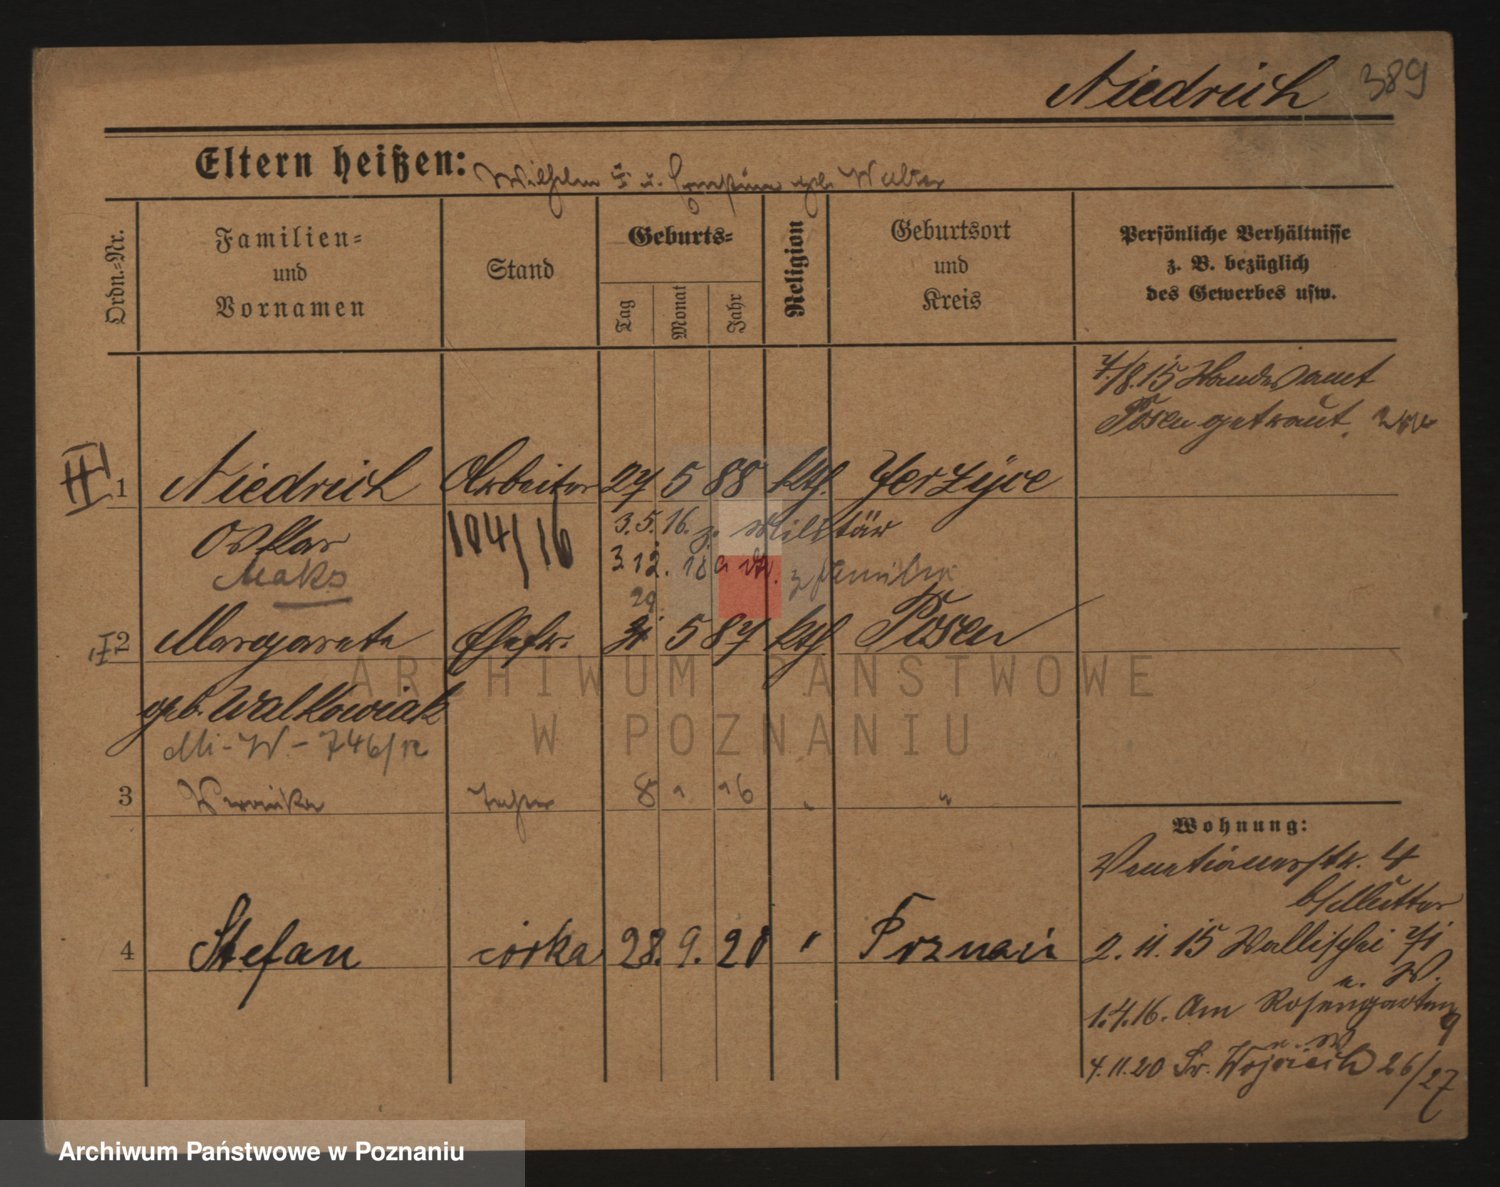 Niedrich 389
Eltern heißen: Wilhelm u. geb. Walter
Ordn.-Nr.
Familien-
und
Vornamen
Stand
Geburts-
Tag
Monat
Jahr
Religion
Geburtsort
und
Kreis
Persönliche Verhältnisse
z. B. bezüglich
des Gewerbes usw.
7/8.15 Standesamt
Posen getraut.
1 Niedrich Arbeiter 27 5 88 kth. Jerzyce
Oskar 104/16 3.5.16. z. Militär
Maks 3.12.18 v. z. Familie
29.
2 Margarete Ehefr. 5 87 kth Posen
geb. Walkowiak
Mi-W-746/12
3 Veronika Tochter 8 1 16 " "
Wohnung:
Venetianerstr. 4
b/Mutter
4 Stefan córka 28. 9. 20 " Poznań
2.11.15 Wallischei
u. W.
1.4.16. Am Rosengarten 9
u. W
4.11.20 Św. Wojciech 26/27
ARCHIWUM PAŃSTWOWE
W POZNANIU
Archiwum Państwowe w Poznaniu